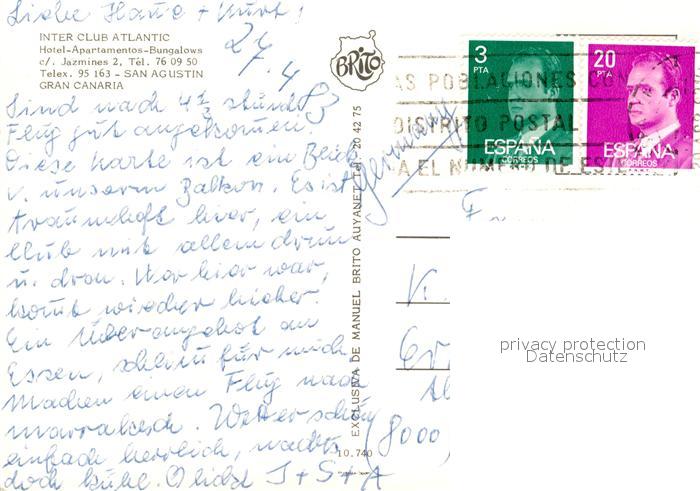 Liebe Hanne + Kurt!
27.4
83
INTER CLUB ATLANTIC
Hotel-Apartamentos-Bungalows
c/. Jazmines 2, Tél. 76 09 50
Telex. 95 163 - SAN AGUSTIN
GRAN CANARIA
Sind nach 4 1/2 Stunde
Flug gut angekommen.
Diese Karte ist ein Blick
v. unserm Balkon. Es ist
traumhaft hier, ein
Club mit allem drum
u. dran. Wer hier war,
kommt wieder hieher.
Ein Überangebot an
Essen, schlimm für mich
Machen einen Flug nach
Marrakesch. Wetter schön
einfach herrlich, nachts
doch kühl.
J + S + A
BRITO
EXCLUSIVA DE MANUEL BRITO AUYANET Tel. 20 42 75
10.740
Germany
3
PTA
ESPAÑA
CORREOS
20
PTA
ESPAÑA
CORREOS
AS POBLACIONES CON
DISTRITO POSTAL
A EL NUMERO DE ESTE
(8000
privacy protection
Datenschutz